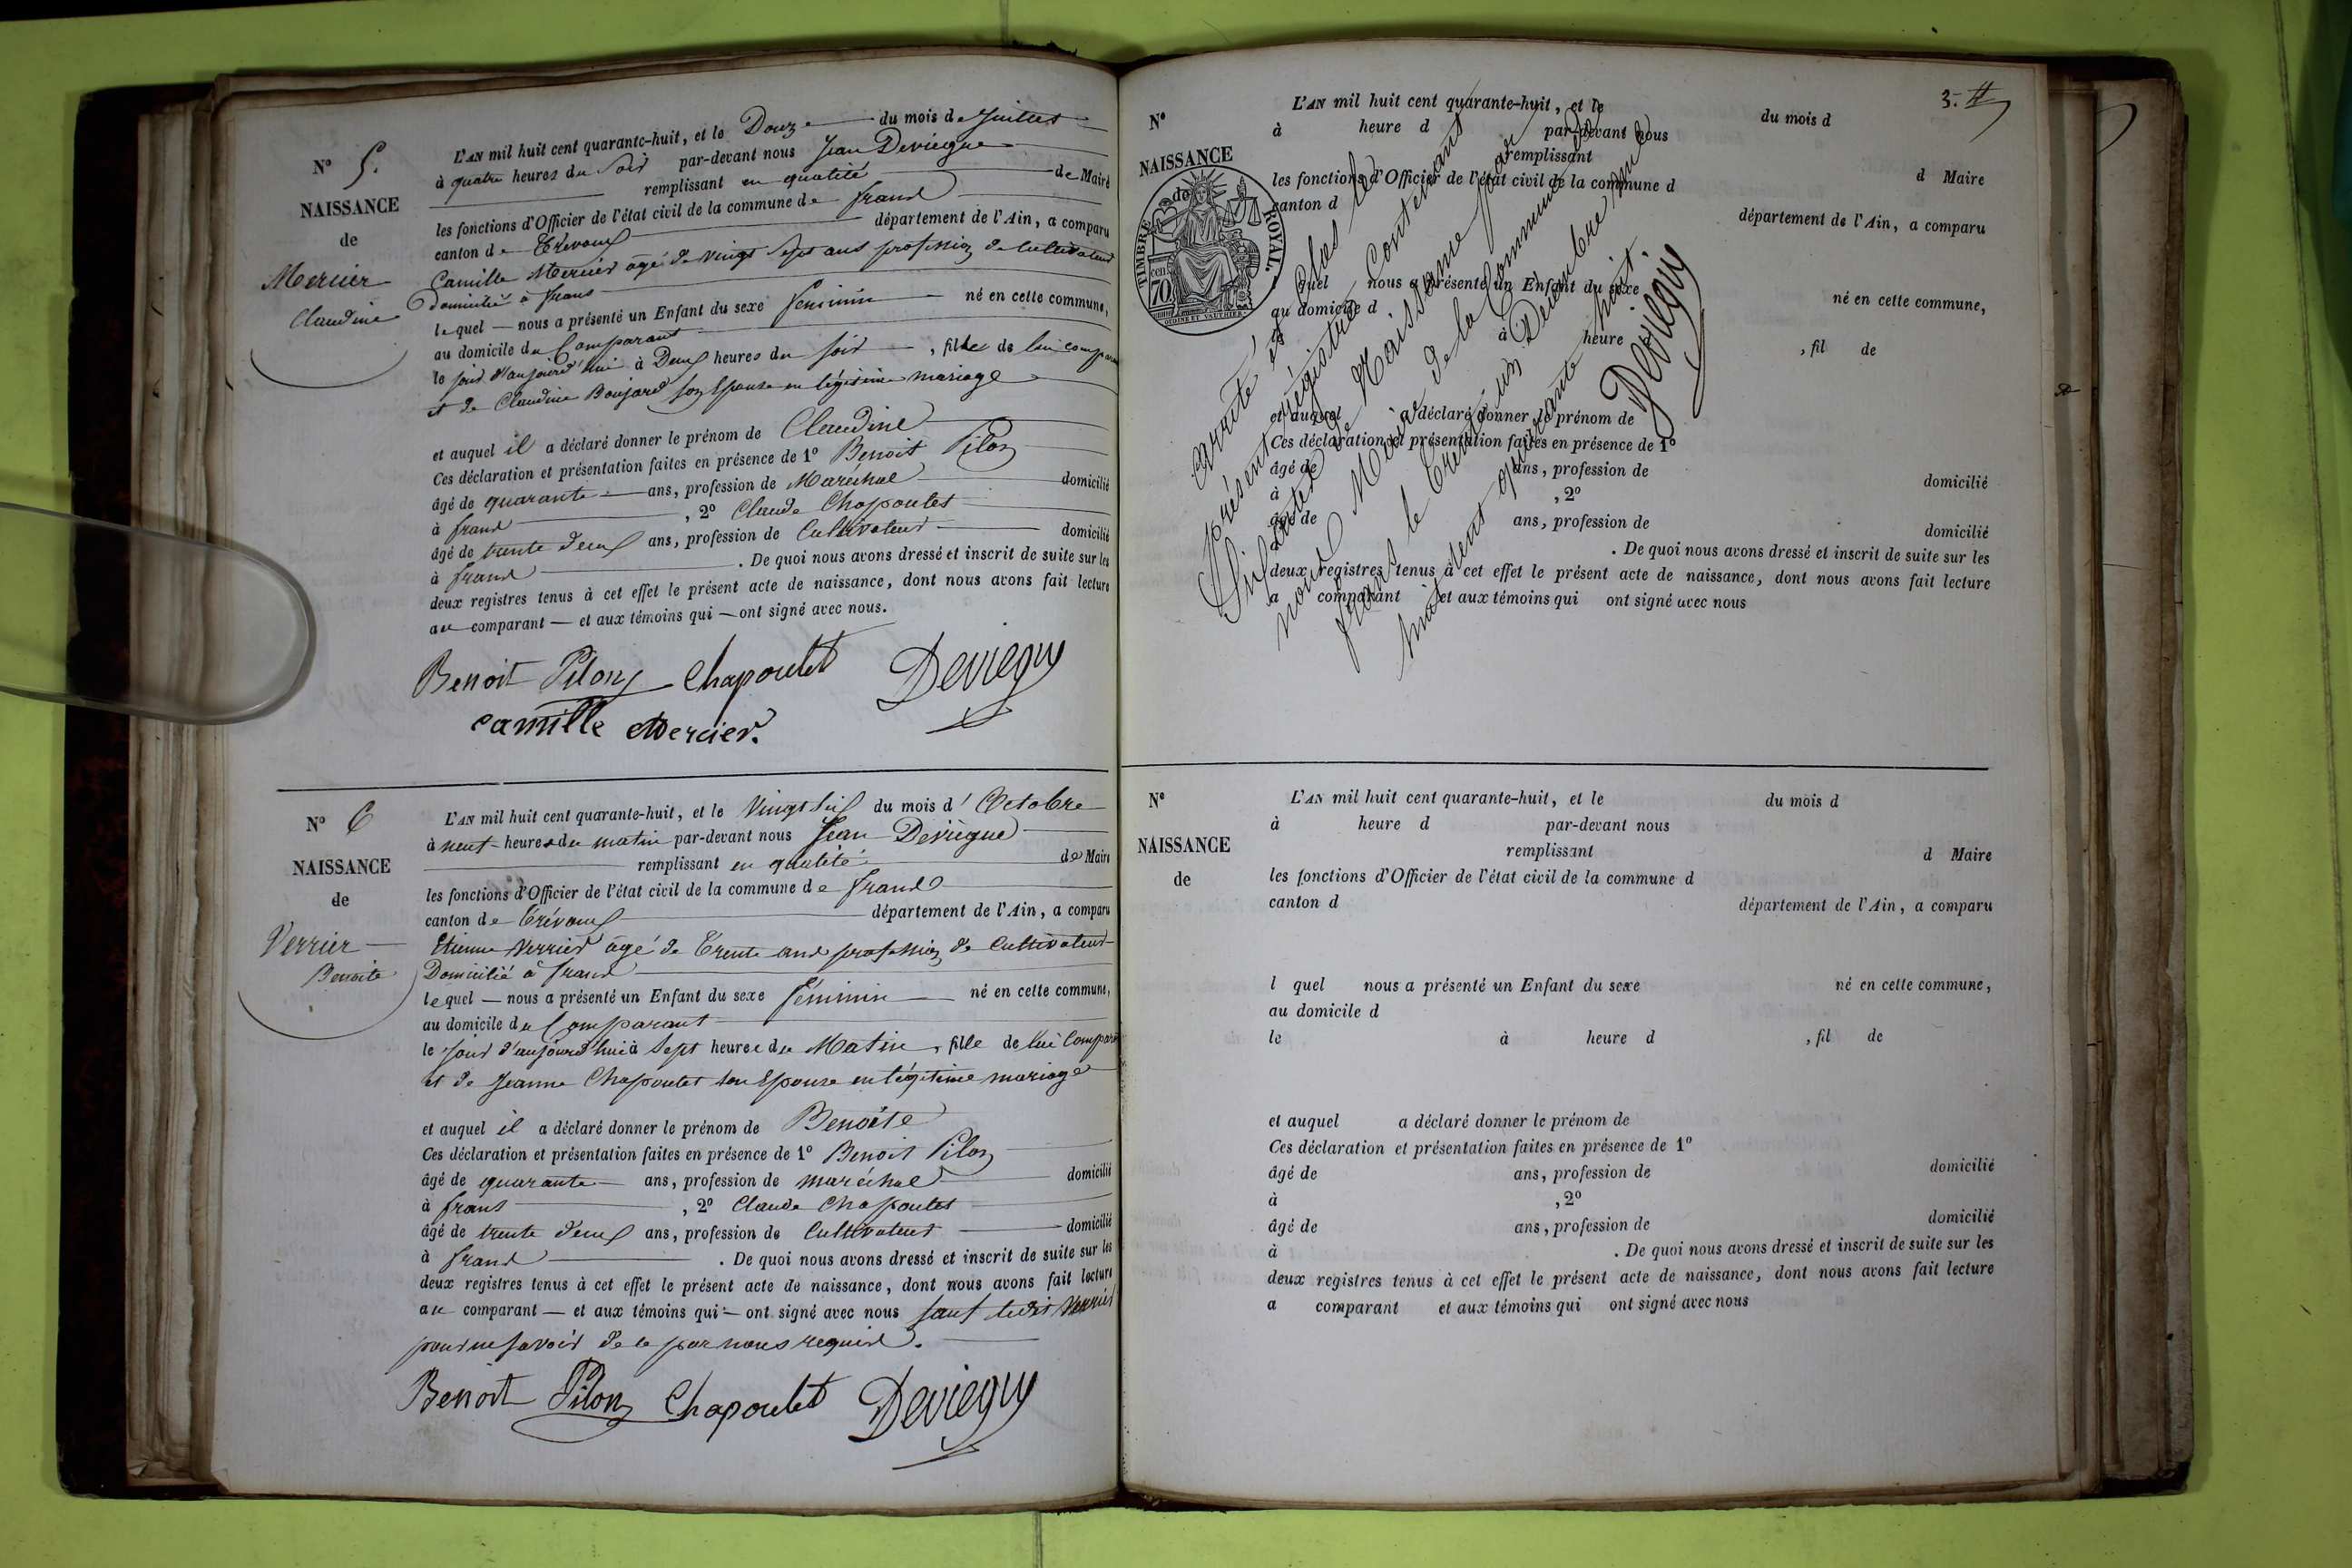 N° 5.
NAISSANCE
de
Mercier
Claudine
L'AN mil huit cent quarante-huit, et le Douze du mois de Juillet
à quatre heures du Soir par-devant nous Jean Deviégue
remplissant en qualité de Maire
les fonctions d'Officier de l'état civil de la commune de frans
canton de Trévoux département de l'Ain, a comparu
Camille Mercier âgé de vingt Sept ans profession de Cultivateur
Domicilié à frans
lequel — nous a présenté un Enfant du sexe feminin né en cette commune,
au domicile du Comparant
le jour d'aujourd'hui à Deux heures du soir , fille de lui compar
et de Claudine Boujard son Epouse en légitime mariage
et auquel il a déclaré donner le prénom de Claudine
Ces déclaration et présentation faites en présence de 1° Benoit Pilon
âgé de quarante ans, profession de Maréchal domicilié
à frans , 2° Claude Chapoutet
âgé de trente deux ans, profession de Cultivateur domicilié
à frans . De quoi nous avons dressé et inscrit de suite sur les
deux registres tenus à cet effet le présent acte de naissance, dont nous avons fait lecture
au comparant — et aux témoins qui — ont signé avec nous.
Benoit Pilon Chapoutet Deviegue
camille Mercier.
N° 6
NAISSANCE
de
Verrier
Benoite
L'AN mil huit cent quarante-huit, et le Vingt six du mois d' Octobre
à neuf heures du matin par-devant nous Jean Deviègue
remplissant en qualité de Maire
les fonctions d'Officier de l'état civil de la commune de frans
canton de Trévoux département de l'Ain, a comparu
Etienne Verrier âgé de Trente ans profession de Cultivateur
Domicilié à frans
lequel — nous a présenté un Enfant du sexe féminin né en cette commune,
au domicile du Comparant
le jour d'aujourd'hui à Sept heures du Matin , fille de lui Compar
et de Jeanne Chapoutet son Epouse en légitime mariage
et auquel il a déclaré donner le prénom de Benoîte
Ces déclaration et présentation faites en présence de 1° Benoit Pilon
âgé de quarante ans, profession de maréchal domicilié
à frans , 2° Claude Chapoutet
âgé de trente deux ans, profession de Cultivateur domicilié
à frans . De quoi nous avons dressé et inscrit de suite sur les
deux registres tenus à cet effet le présent acte de naissance, dont nous avons fait lecture
au comparant — et aux témoins qui — ont signé avec nous sauf ledit Verrier
pour ne savoir de ce par nous requis.
Benoit Pilon Chapoutet Deviegue
3.
N°
NAISSANCE
de
TIMBRE ROYAL.
70
L'AN mil huit cent quarante-huit, et le du mois d
à heure d par-devant nous
remplissant d Maire
les fonctions d'Officier de l'état civil de la commune d
canton d département de l'Ain, a comparu
l quel nous a présenté un Enfant du sexe né en cette commune,
au domicile d
le à heure d , fil de
et auquel a déclaré donner le prénom de
Ces déclaration et présentation faites en présence de 1°
âgé de ans, profession de domicilié
à , 2°
âgé de ans, profession de domicilié
à . De quoi nous avons dressé et inscrit de suite sur les
deux registres tenus à cet effet le présent acte de naissance, dont nous avons fait lecture
a comparant et aux témoins qui ont signé avec nous
arrêté et Clos le
présent régistre Contenant
Six actes de Naissance par
nous Maire de la Commune de
frans le trente un Décembre mil
huit cent quarante huit.
Deviegue
N°
NAISSANCE
de
L'AN mil huit cent quarante-huit, et le du mois d
à heure d par-devant nous
remplissant d Maire
les fonctions d'Officier de l'état civil de la commune d
canton d département de l'Ain, a comparu
l quel nous a présenté un Enfant du sexe né en cette commune,
au domicile d
le à heure d , fil de
et auquel a déclaré donner le prénom de
Ces déclaration et présentation faites en présence de 1°
âgé de ans, profession de domicilié
à , 2°
âgé de ans, profession de domicilié
à . De quoi nous avons dressé et inscrit de suite sur les
deux registres tenus à cet effet le présent acte de naissance, dont nous avons fait lecture
a comparant et aux témoins qui ont signé avec nous